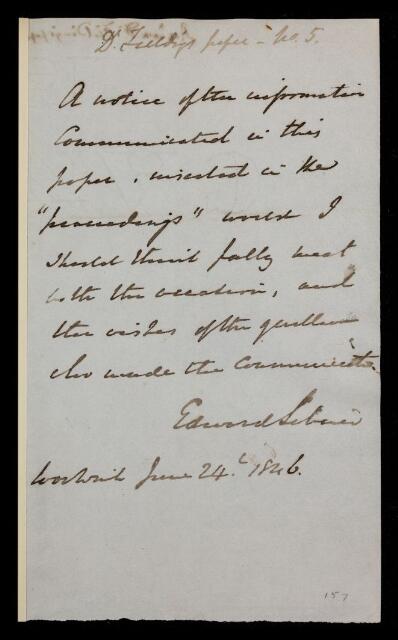 Dr. Fielding's paper - No. 5.
A notice of the information
Communicated in this
paper, inserted in the
"proceedings" would I
should think fully meet
both the occasion, and
the wishes of the gentleman
who made the communicatn.
Edward Sabine
Woolwich June 24th 1846.
157